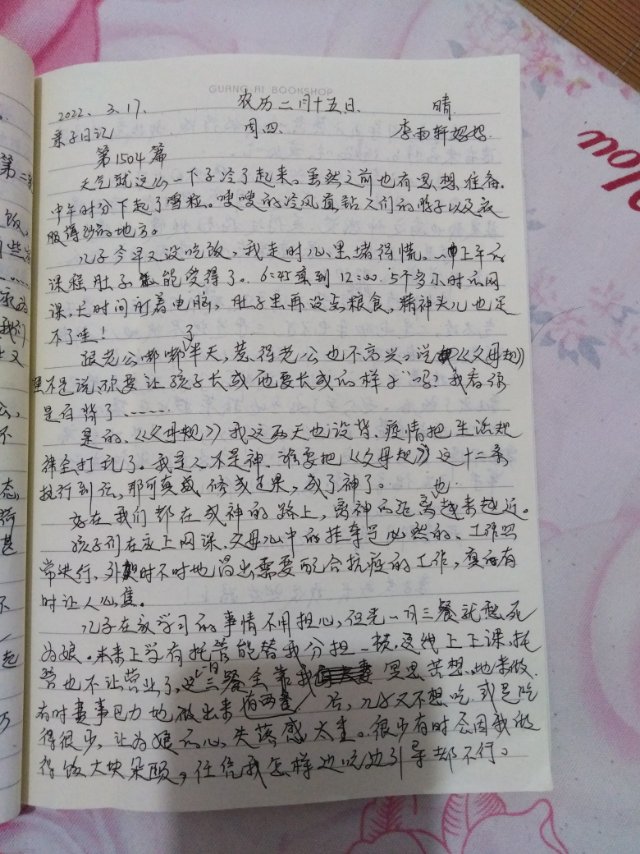 GUANG AI BOOKSHOP
2022. 3.17. 农历二月十五日. 晴
亲子日记 周四. 李雨轩妈妈.
第1504篇
天气就这么一下子冷了起来。虽然之前也有思想准备.
中午时分下起了雪粒。嗖嗖的冷风直钻人们的脖子以及衣
服薄弱的地方。
儿子今早又没吃饭，我走时心里堵得慌。一上午
课程肚子怎能受得了。6:45至到12:00. 5个多小时的网
课，长时间盯着电脑，肚子里再没点粮食，精神头儿也足
不了哇！
跟老公嘟嘟了半天，惹得老公也不高兴。说《父母规》
里不是说"你要让孩子长成你要长成的样子"吗？我看你
是白背了……
是的，《父母规》我这两天也没背，疫情把生活规
律全打乱了。我是人不是神。谁要把《父母规》这十二条
执行到位，那可真就修成正果，成了神了。
好在我们都在成神的路上，离神的距离也越来越近。
孩子们在家上网课，父母心中的挂牵是必然的，工作照
常进行，外加时不时地冒出需要配合抗疫的工作，真的有
时让人心焦。
儿子在家学习的事情不用担心，但光一日三餐就愁死
为娘。本来上学有托管能替我分担一顿，这线上上课，托
管也不让营业了，这一日三餐全靠我冥思苦想地来做.
有时费事巴力地做出来后，儿子又不想吃或是吃
得很少，让为娘的心，失落感太重。很少有时会因我做
得饭大块朵颐，任凭我怎样边吃边引导都不行。